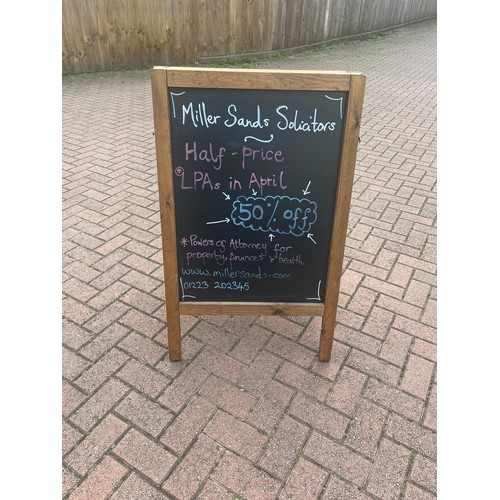 Miller Sands Solicitors
Half-price
*LPAs in April
50% off
*Powers of Attorney for
property, finances & health
www.millersands.com
01223 202345